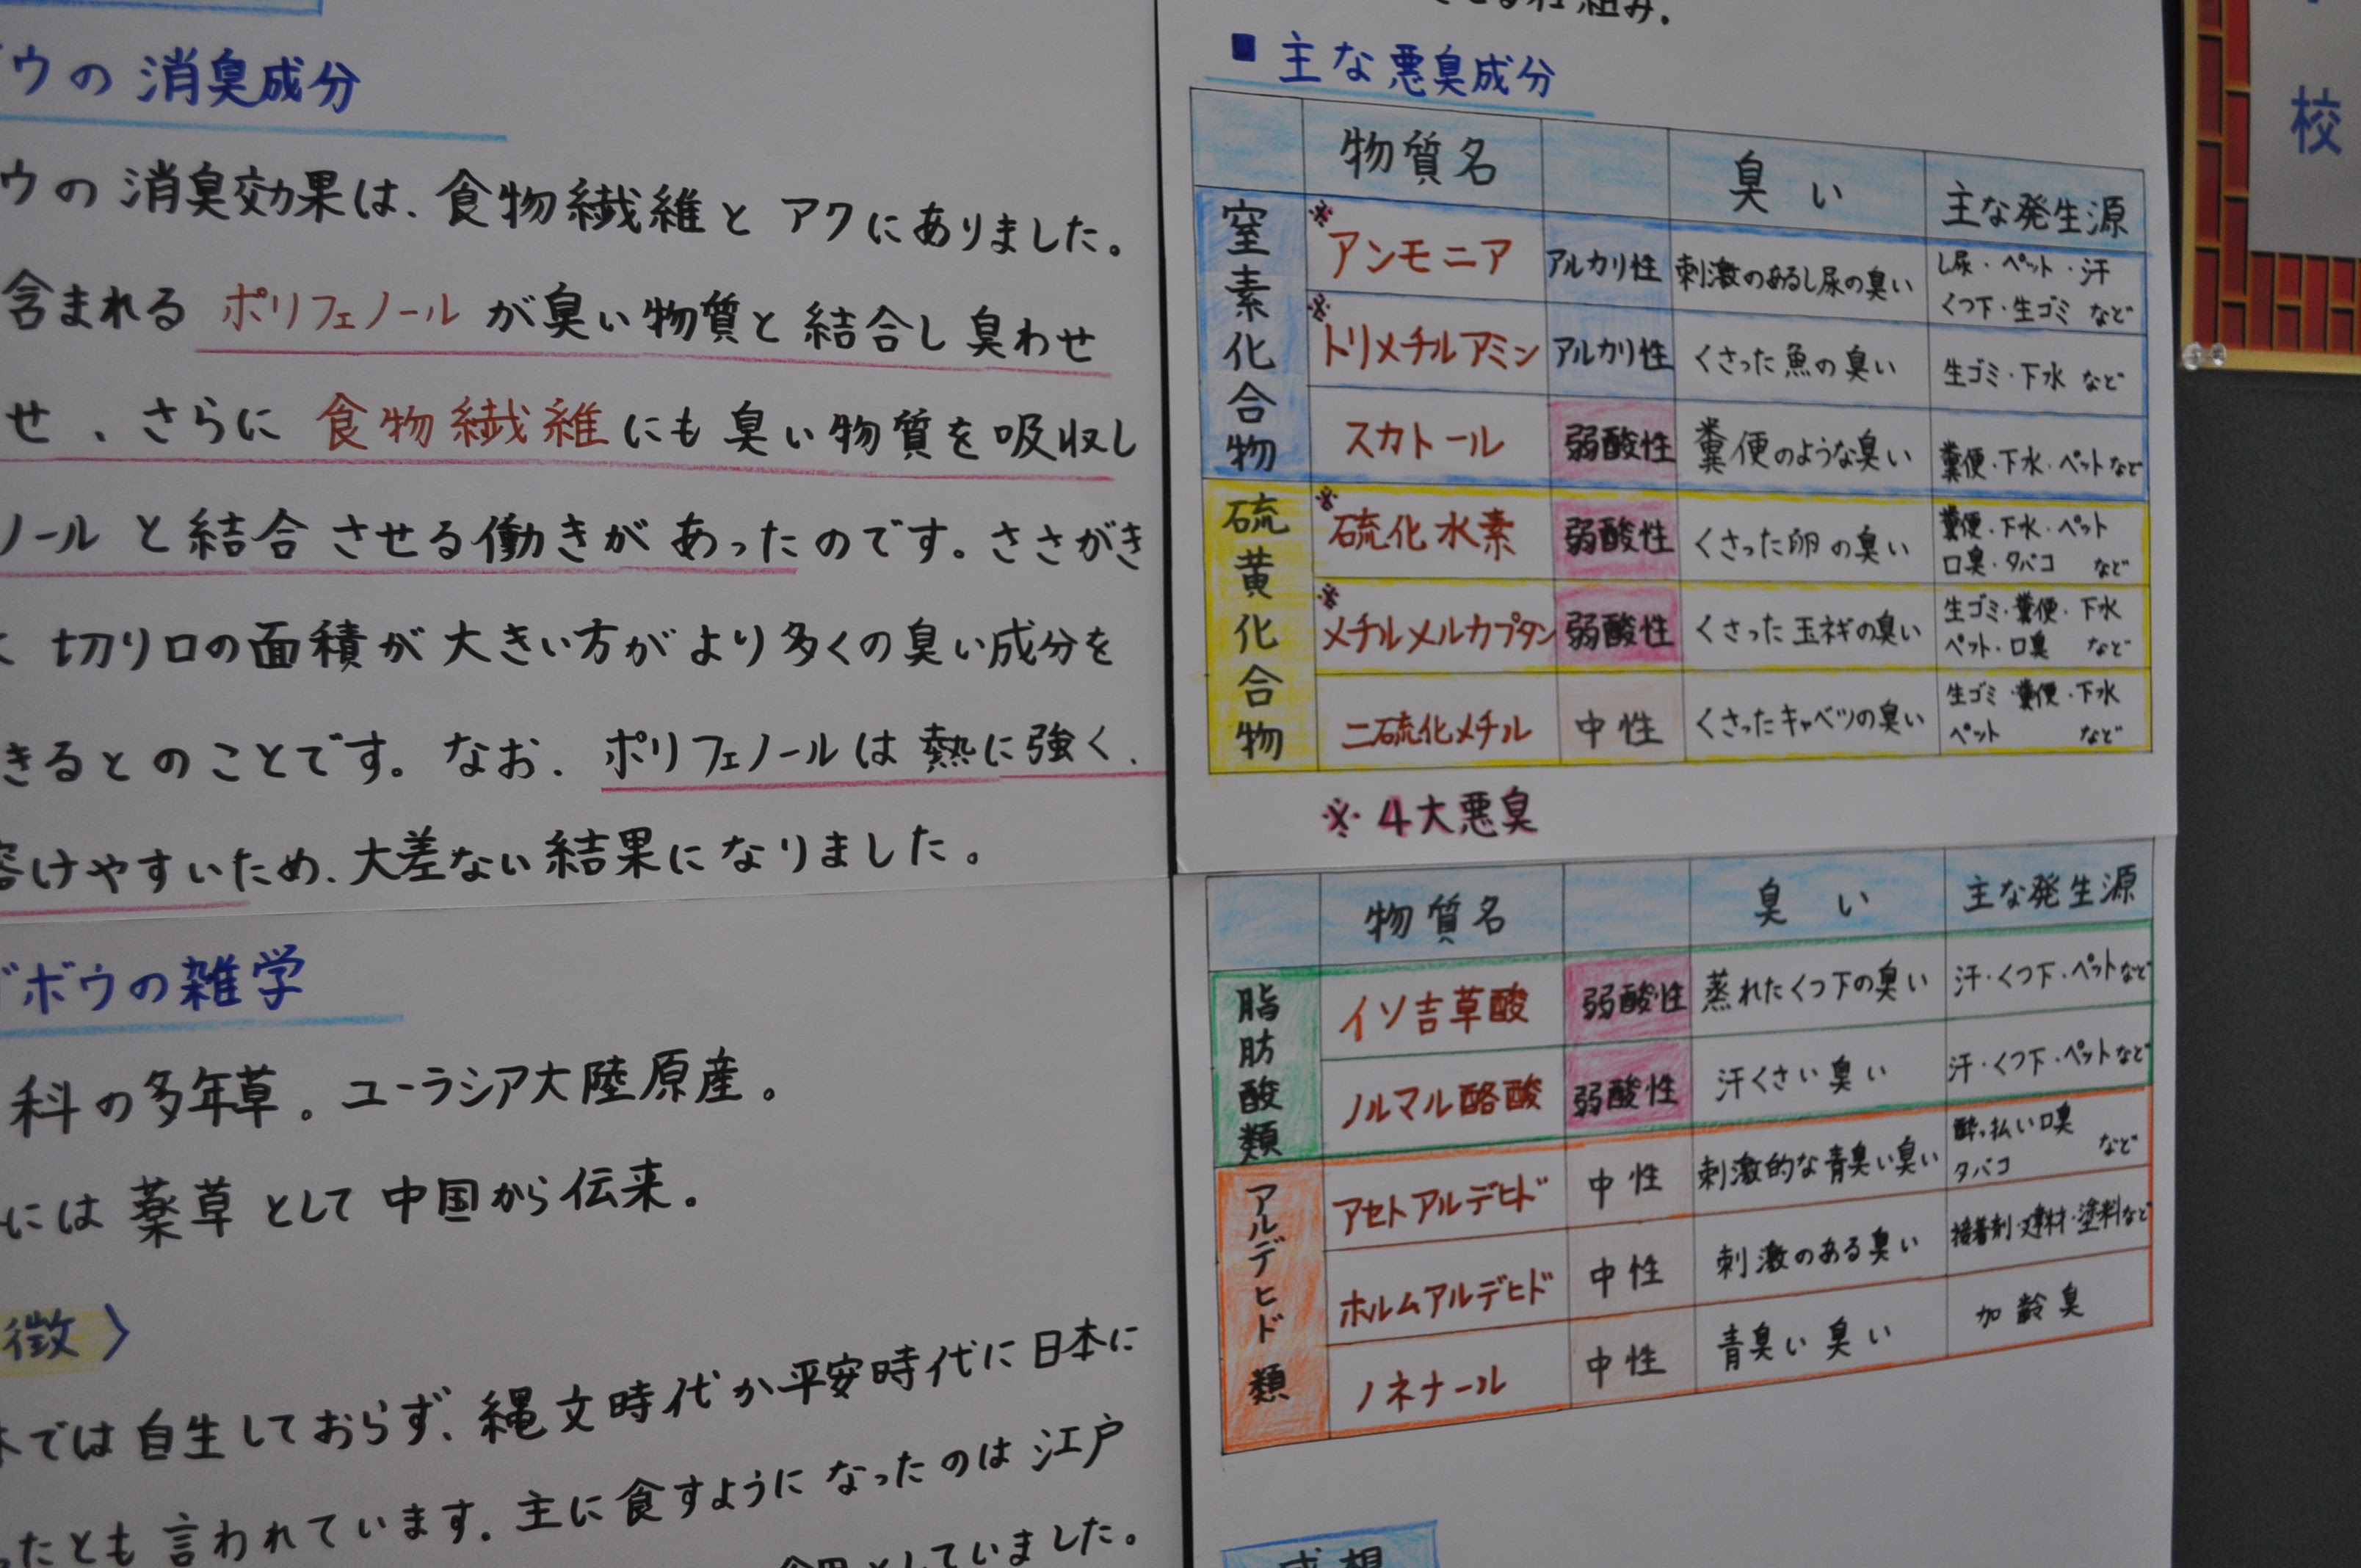 ウの消臭成分
ウの消臭効果は、食物繊維とアクにありました。
含まれるポリフェノールが臭い物質と結合し臭わせ
せ、さらに食物繊維にも臭い物質を吸収し
ノールと結合させる働きがあったのです。ささがき
切り口の面積が大きい方がより多くの臭い成分を
きるとのことです。なお、ポリフェノールは熱に強く、
溶けやすいため、大差ない結果になりました。
ゴボウの雑学
科の多年草。ユーラシア大陸原産。
には薬草として中国から伝来。
徴〉
では自生しておらず、縄文時代か平安時代に日本に
ったとも言われています。主に食すようになったのは江戸
していました。
組み.
■主な悪臭成分
物質名 臭い 主な発生源
窒素化合物
※アンモニア アルカリ性 刺激のあるし尿の臭い し尿・ペット・汗
くつ下・生ゴミ など
※トリメチルアミン アルカリ性 くさった魚の臭い 生ゴミ・下水 など
スカトール 弱酸性 糞便のような臭い 糞便・下水・ペットなど
硫黄化合物
※硫化水素 弱酸性 くさった卵の臭い 糞便・下水・ペット
口臭・タバコ など
※メチルメルカプタン 弱酸性 くさった玉ネギの臭い 生ゴミ・糞便・下水
ペット・口臭 など
二硫化メチル 中性 くさったキャベツの臭い 生ゴミ・糞便・下水
ペット など
※4大悪臭
物質名 臭い 主な発生源
脂肪酸類
イソ吉草酸 弱酸性 蒸れたくつ下の臭い 汗・くつ下・ペットなど
ノルマル酪酸 弱酸性 汗くさい臭い 汗・くつ下・ペットなど
アルデヒド類
アセトアルデヒド 中性 刺激的な青臭い臭い 酔っ払い口臭
タバコ など
ホルムアルデヒド 中性 刺激のある臭い 接着剤・建材・塗料など
ノネナール 中性 青臭い臭い 加齢臭
感想
校